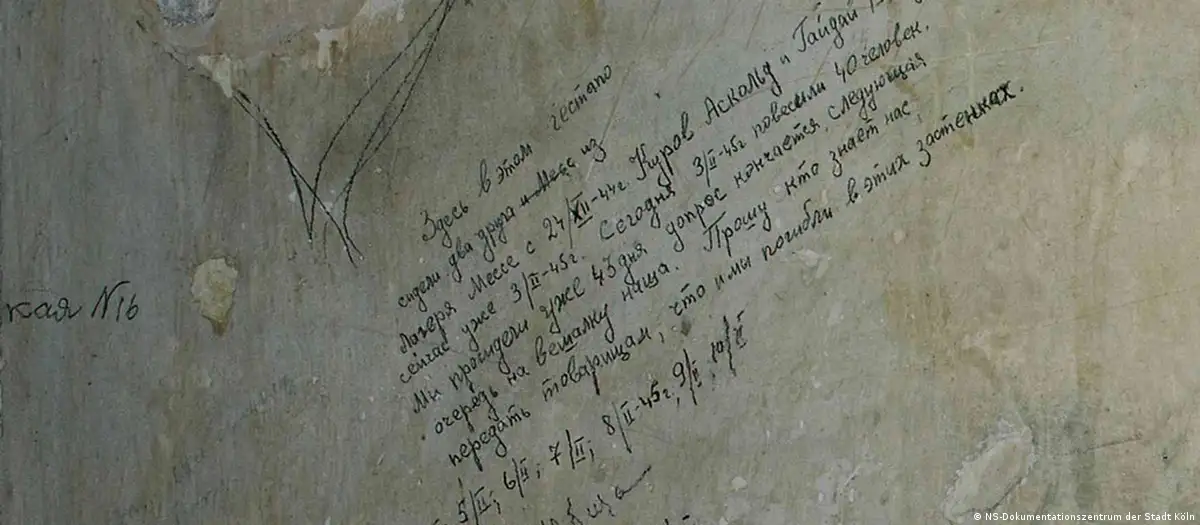 Здесь в этом гестапо
сидели два друга и Месс из
Лагеря Мессе с 24/XII-44г. Куров Аскольд и Гайдай
сейчас уже 3/II-45г. Сегодня 3/II-45г повесили 40 человек.
Мы просидели уже 43 дня допрос кончается, следующая
очередь на вешалку наша. Прошу кто знает нас,
передать товарищам, что и мы погибли в этих застенках.
5/II; 6/II; 7/II; 8/II-45г. 9/II, 10/II
кая N16
© NS-Dokumentationszentrum der Stadt Köln